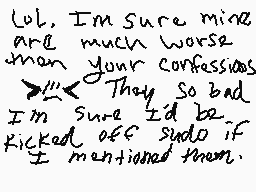 Lol. I'm sure mine
are much worse
than your confessions
They so bad
I'm sure I'd be
kicked off sudo if
I mentioned them.